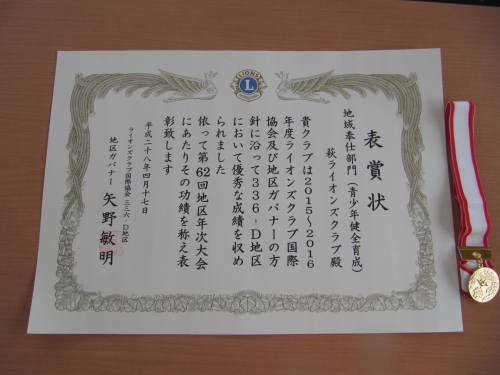 表賞状
地域奉仕部門(青少年健全育成)
萩ライオンズクラブ殿
貴クラブは2015~2016
年度ライオンズクラブ国際
協会及び地区ガバナーの方
針に沿って336-D地区
において優秀な成績を収め
られました
依って第62回地区年次大会
にあたりその功績を称え表
彰致します
平成二十八年四月十七日
ライオンズクラブ国際協会 三三六-D地区
地区ガバナー 矢野敏明
LIONS
L